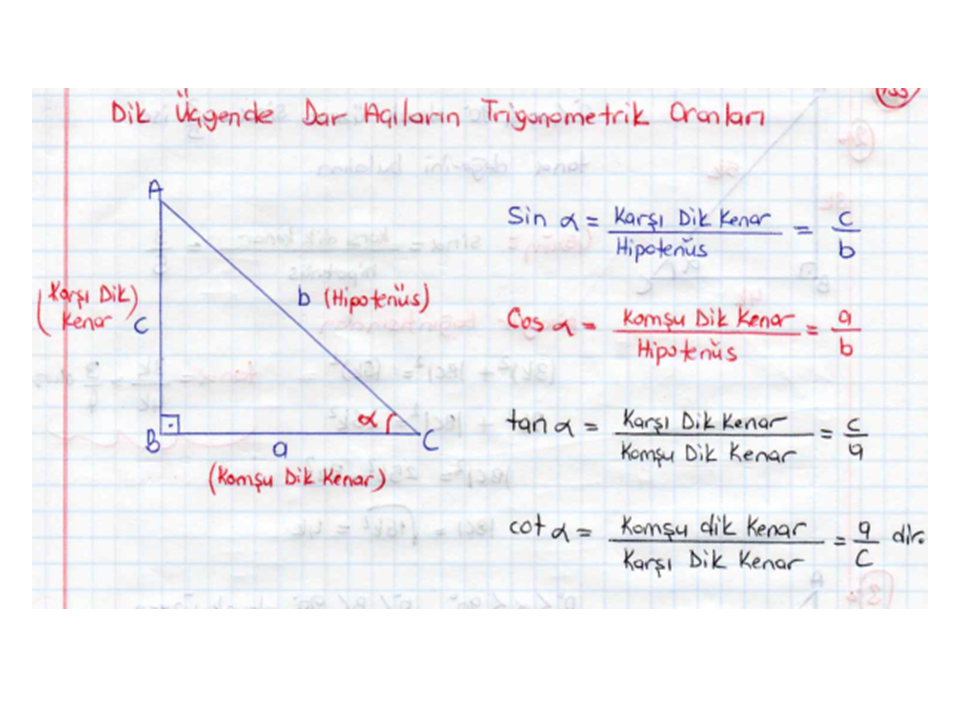 Dik Üçgende Dar Açıların Trigonometrik Oranları
A
(Karşı Dik Kenar) c
b (Hipotenüs)
B
α
C
a
(Komşu Dik Kenar)
Sin α = Karşı Dik Kenar / Hipotenüs = c / b
Cos α = Komşu Dik Kenar / Hipotenüs = a / b
tan α = Karşı Dik Kenar / Komşu Dik Kenar = c / a
cot α = Komşu dik Kenar / Karşı Dik Kenar = a / c dir.